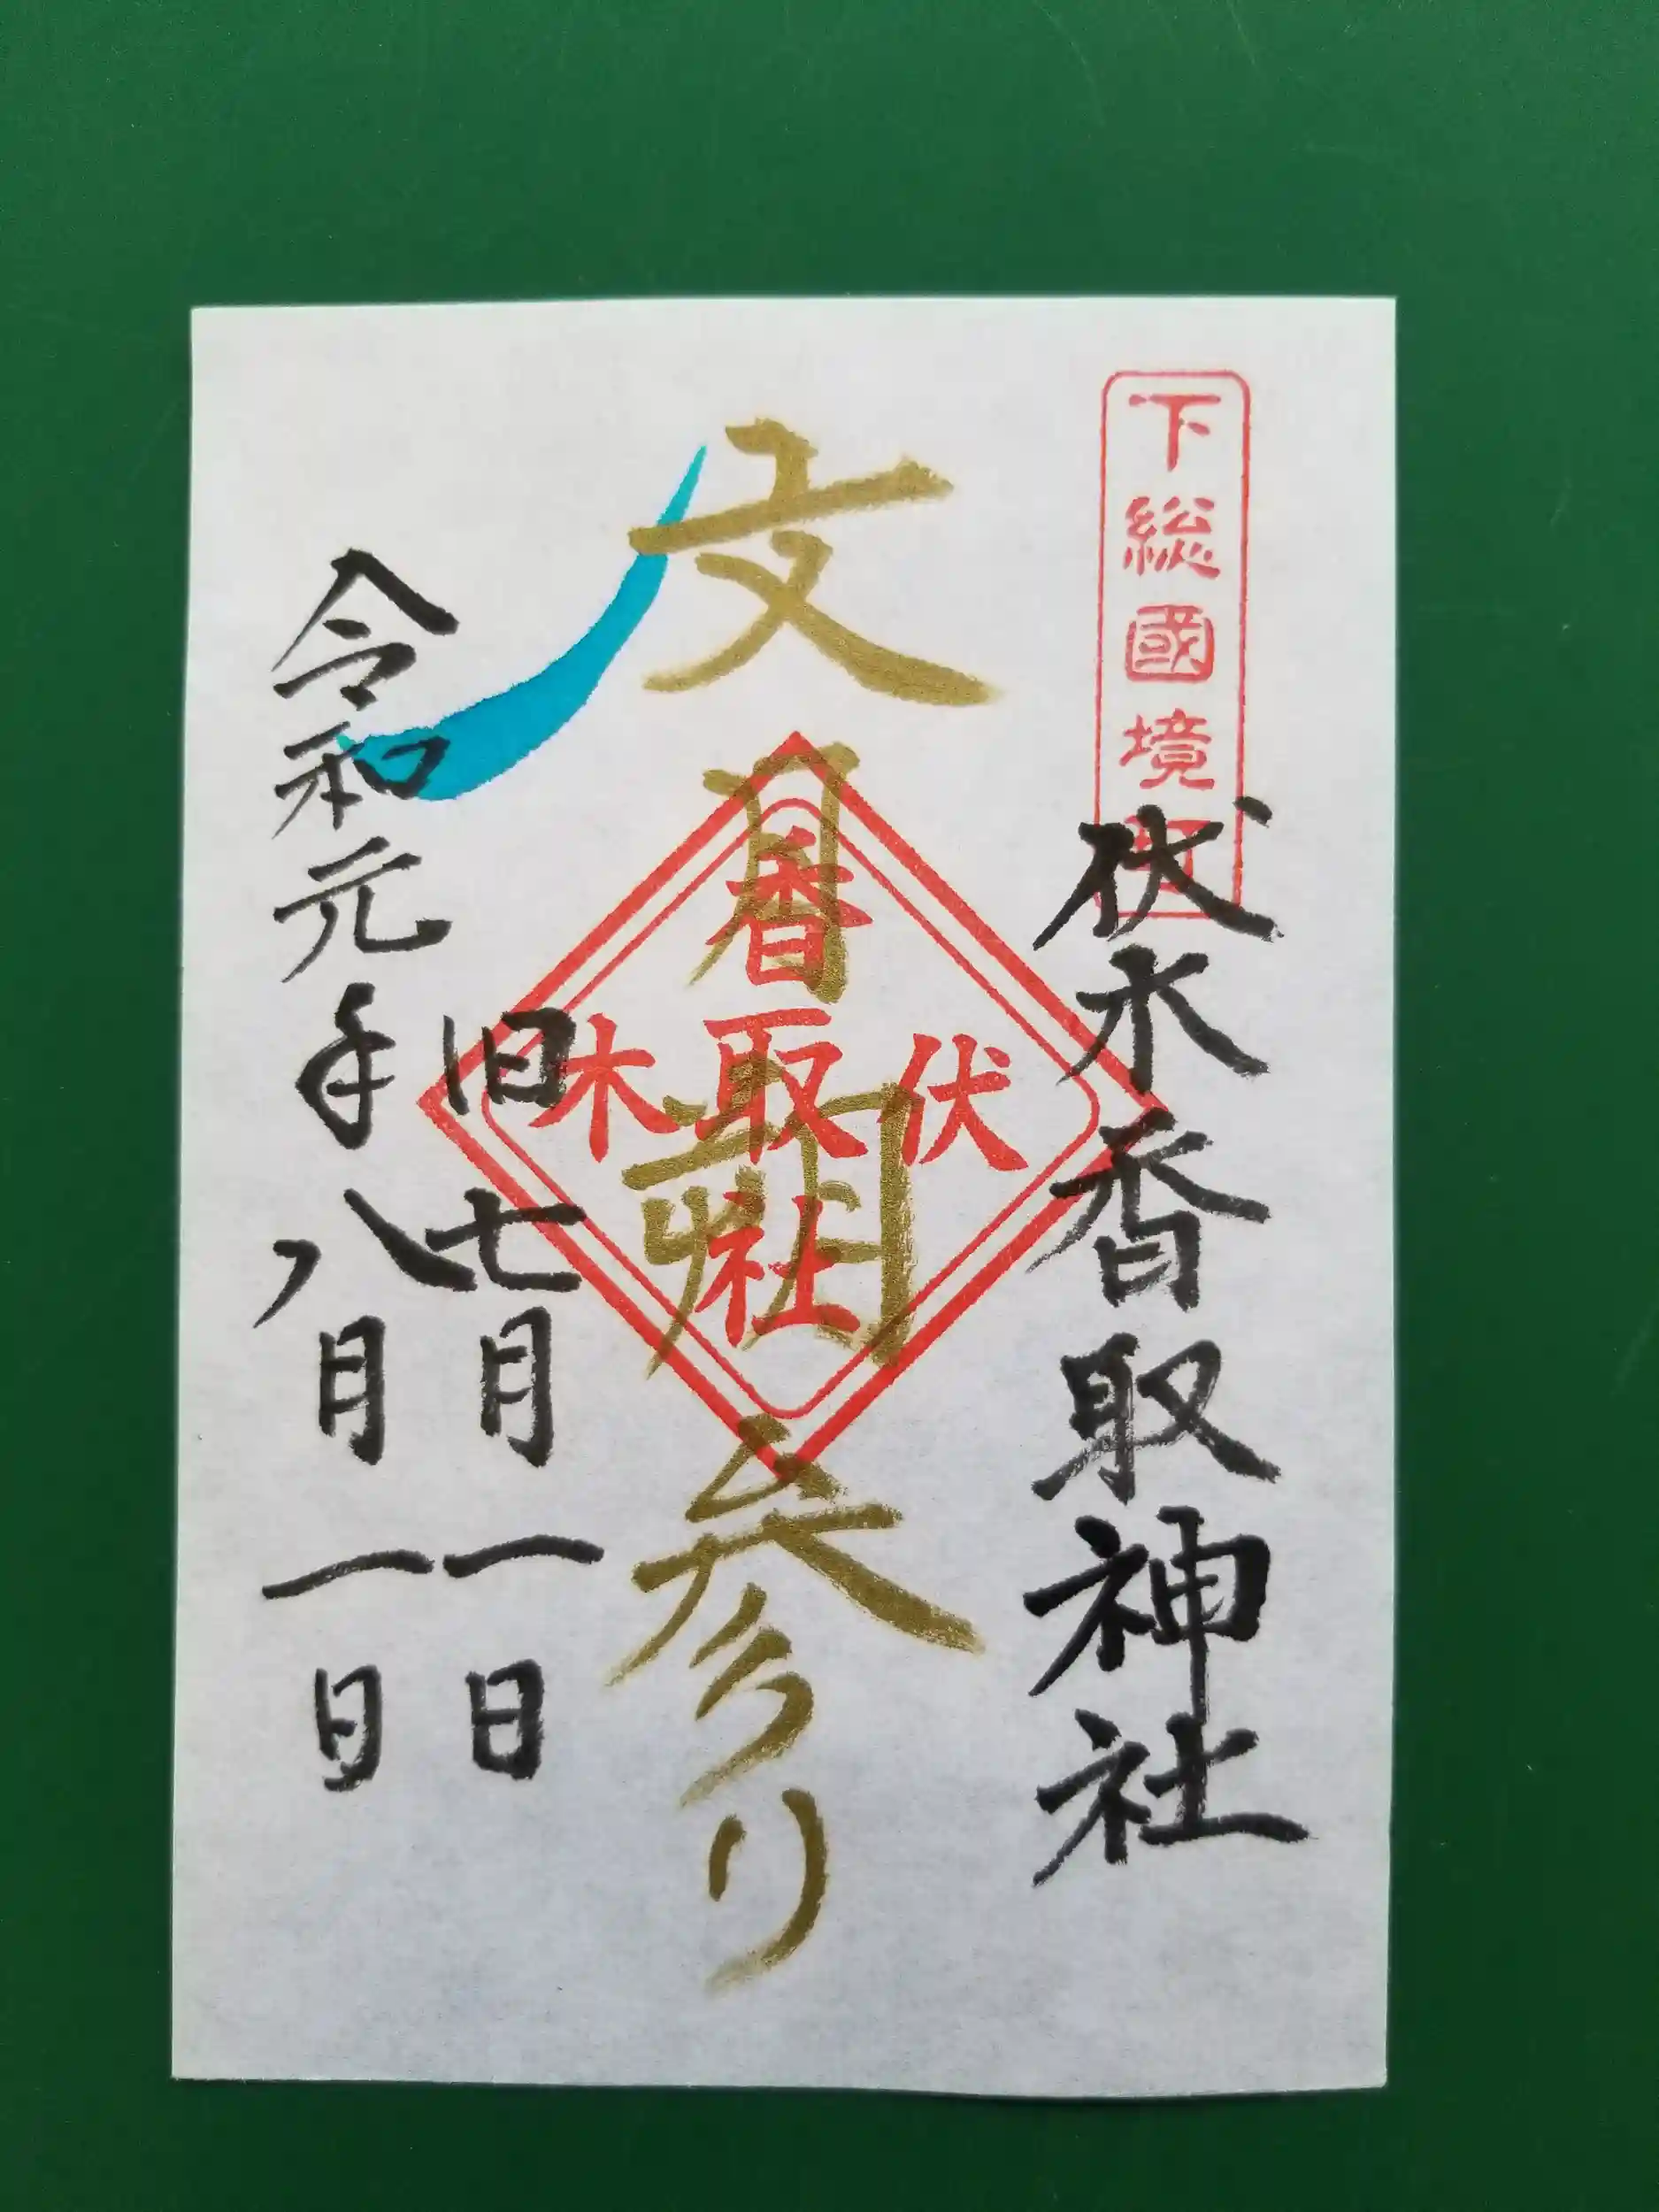 下総國境町
伏木香取神社
文月朔参り
香取社
伏木
旧七月一日
令和元年八月一日